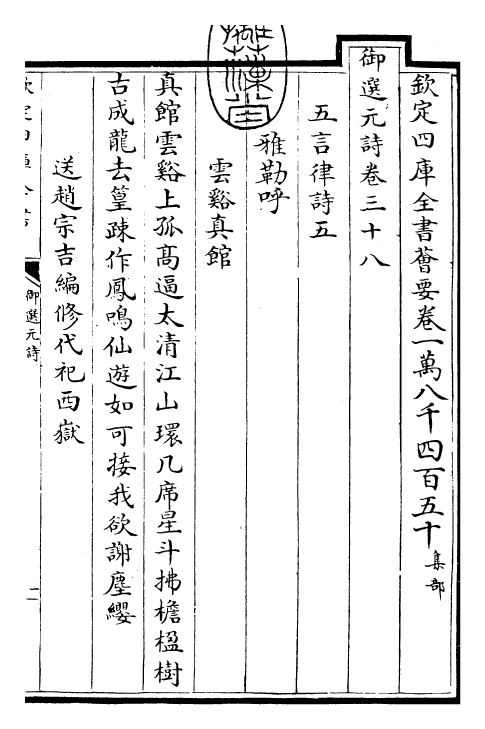 欽定四庫全書薈要卷一萬八千四百五十集部
御選元詩卷三十八
五言律詩五
雅勒呼
雲谿真館
真館雲谿上孤髙逼太清江山環几席星斗拂檐楹樹
古成龍去篁踈作鳳鳴仙遊如可接我欲謝塵纓
送趙宗吉編修代祀西嶽
御選元詩